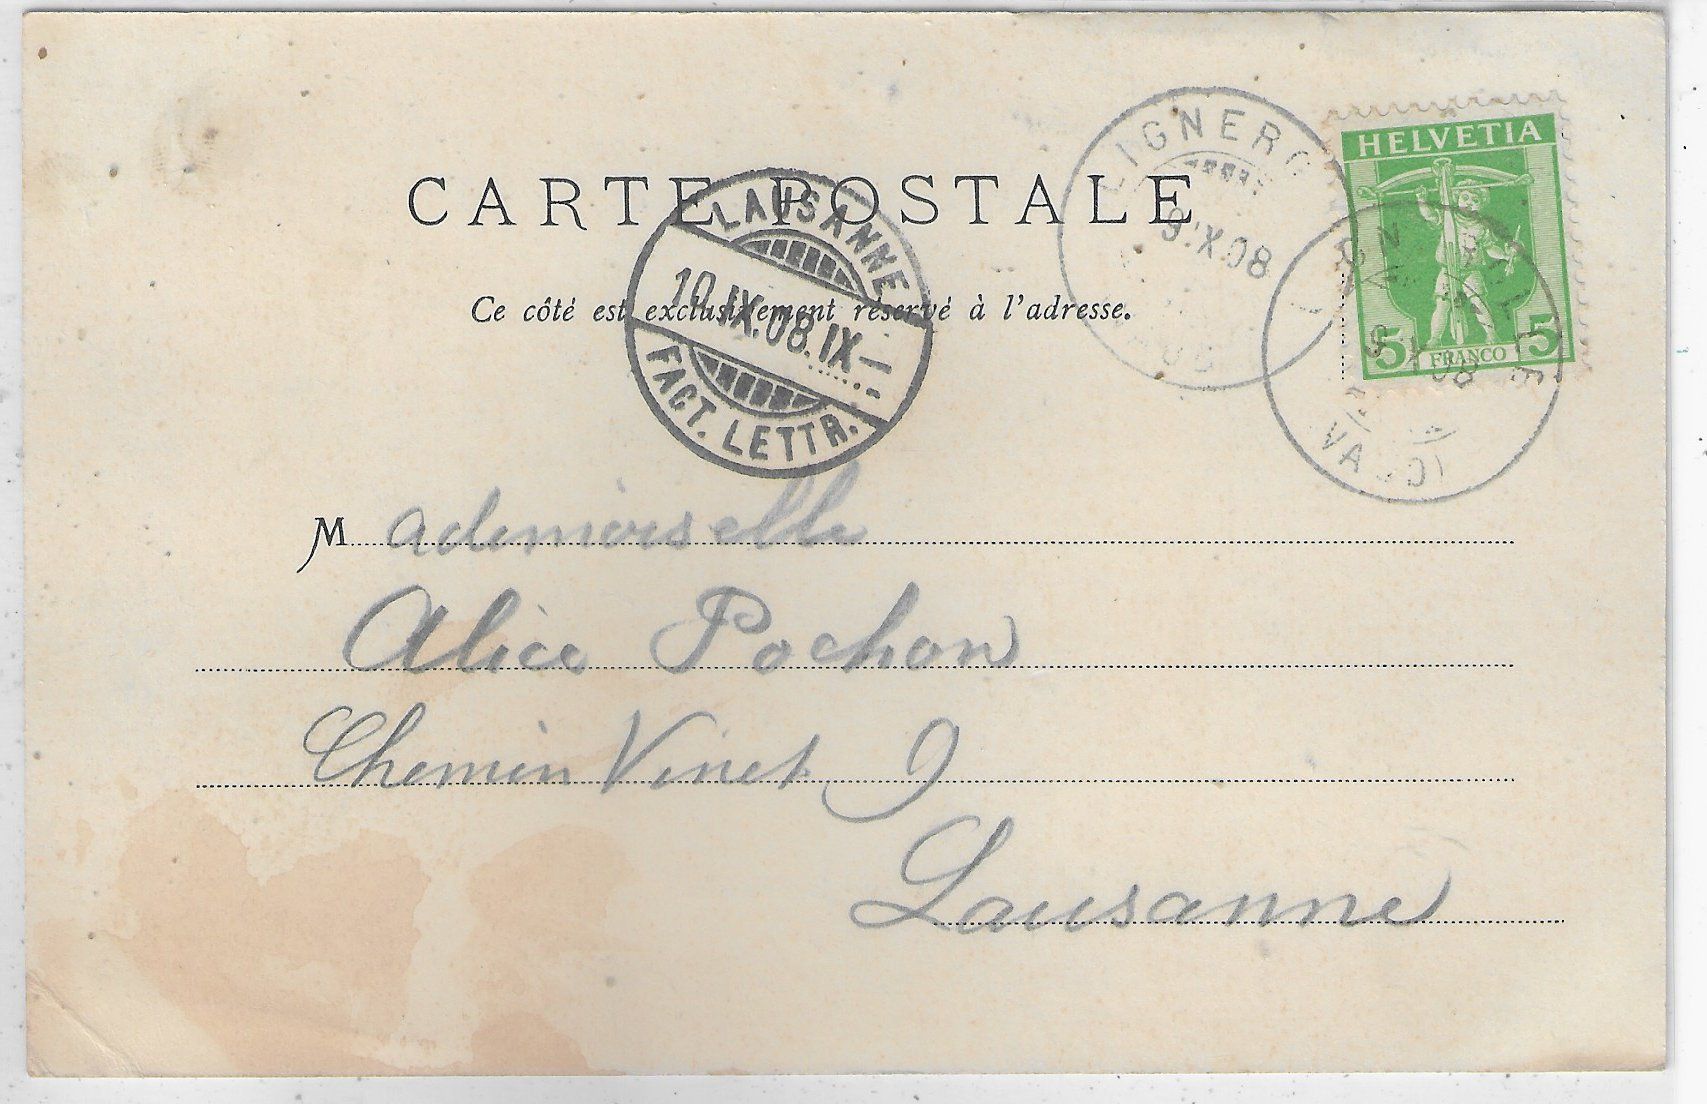 CARTE POSTALE
Ce côté est exclusivement réservé à l'adresse.
LAUSANNE
10.IX.08.IX—
FACT. LETTR.
9.IX.08
HELVETIA
5 FRANCO 5
Mademoiselle
Alice Pochon
Chemin Vinet 9
Lausanne